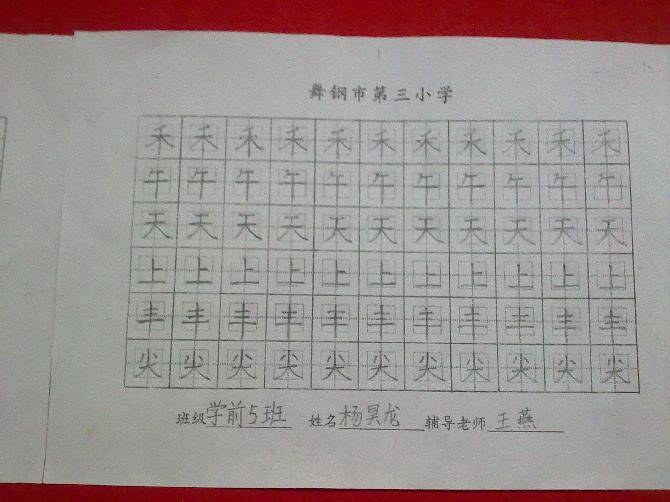 舞钢市第三小学
禾 禾 禾 禾 禾 禾 禾 禾 禾 禾 禾
午 午 午 午 午 午 午 午 午 午 午
天 天 天 天 天 天 天 天 天 天 天
上 上 上 上 上 上 上 上 上 上 上
丰 丰 丰 丰 丰 丰 丰 丰 丰 丰 丰
尖 尖 尖 尖 尖 尖 尖 尖 尖 尖 尖
班级学前5班 姓名杨昊龙 辅导老师王燕